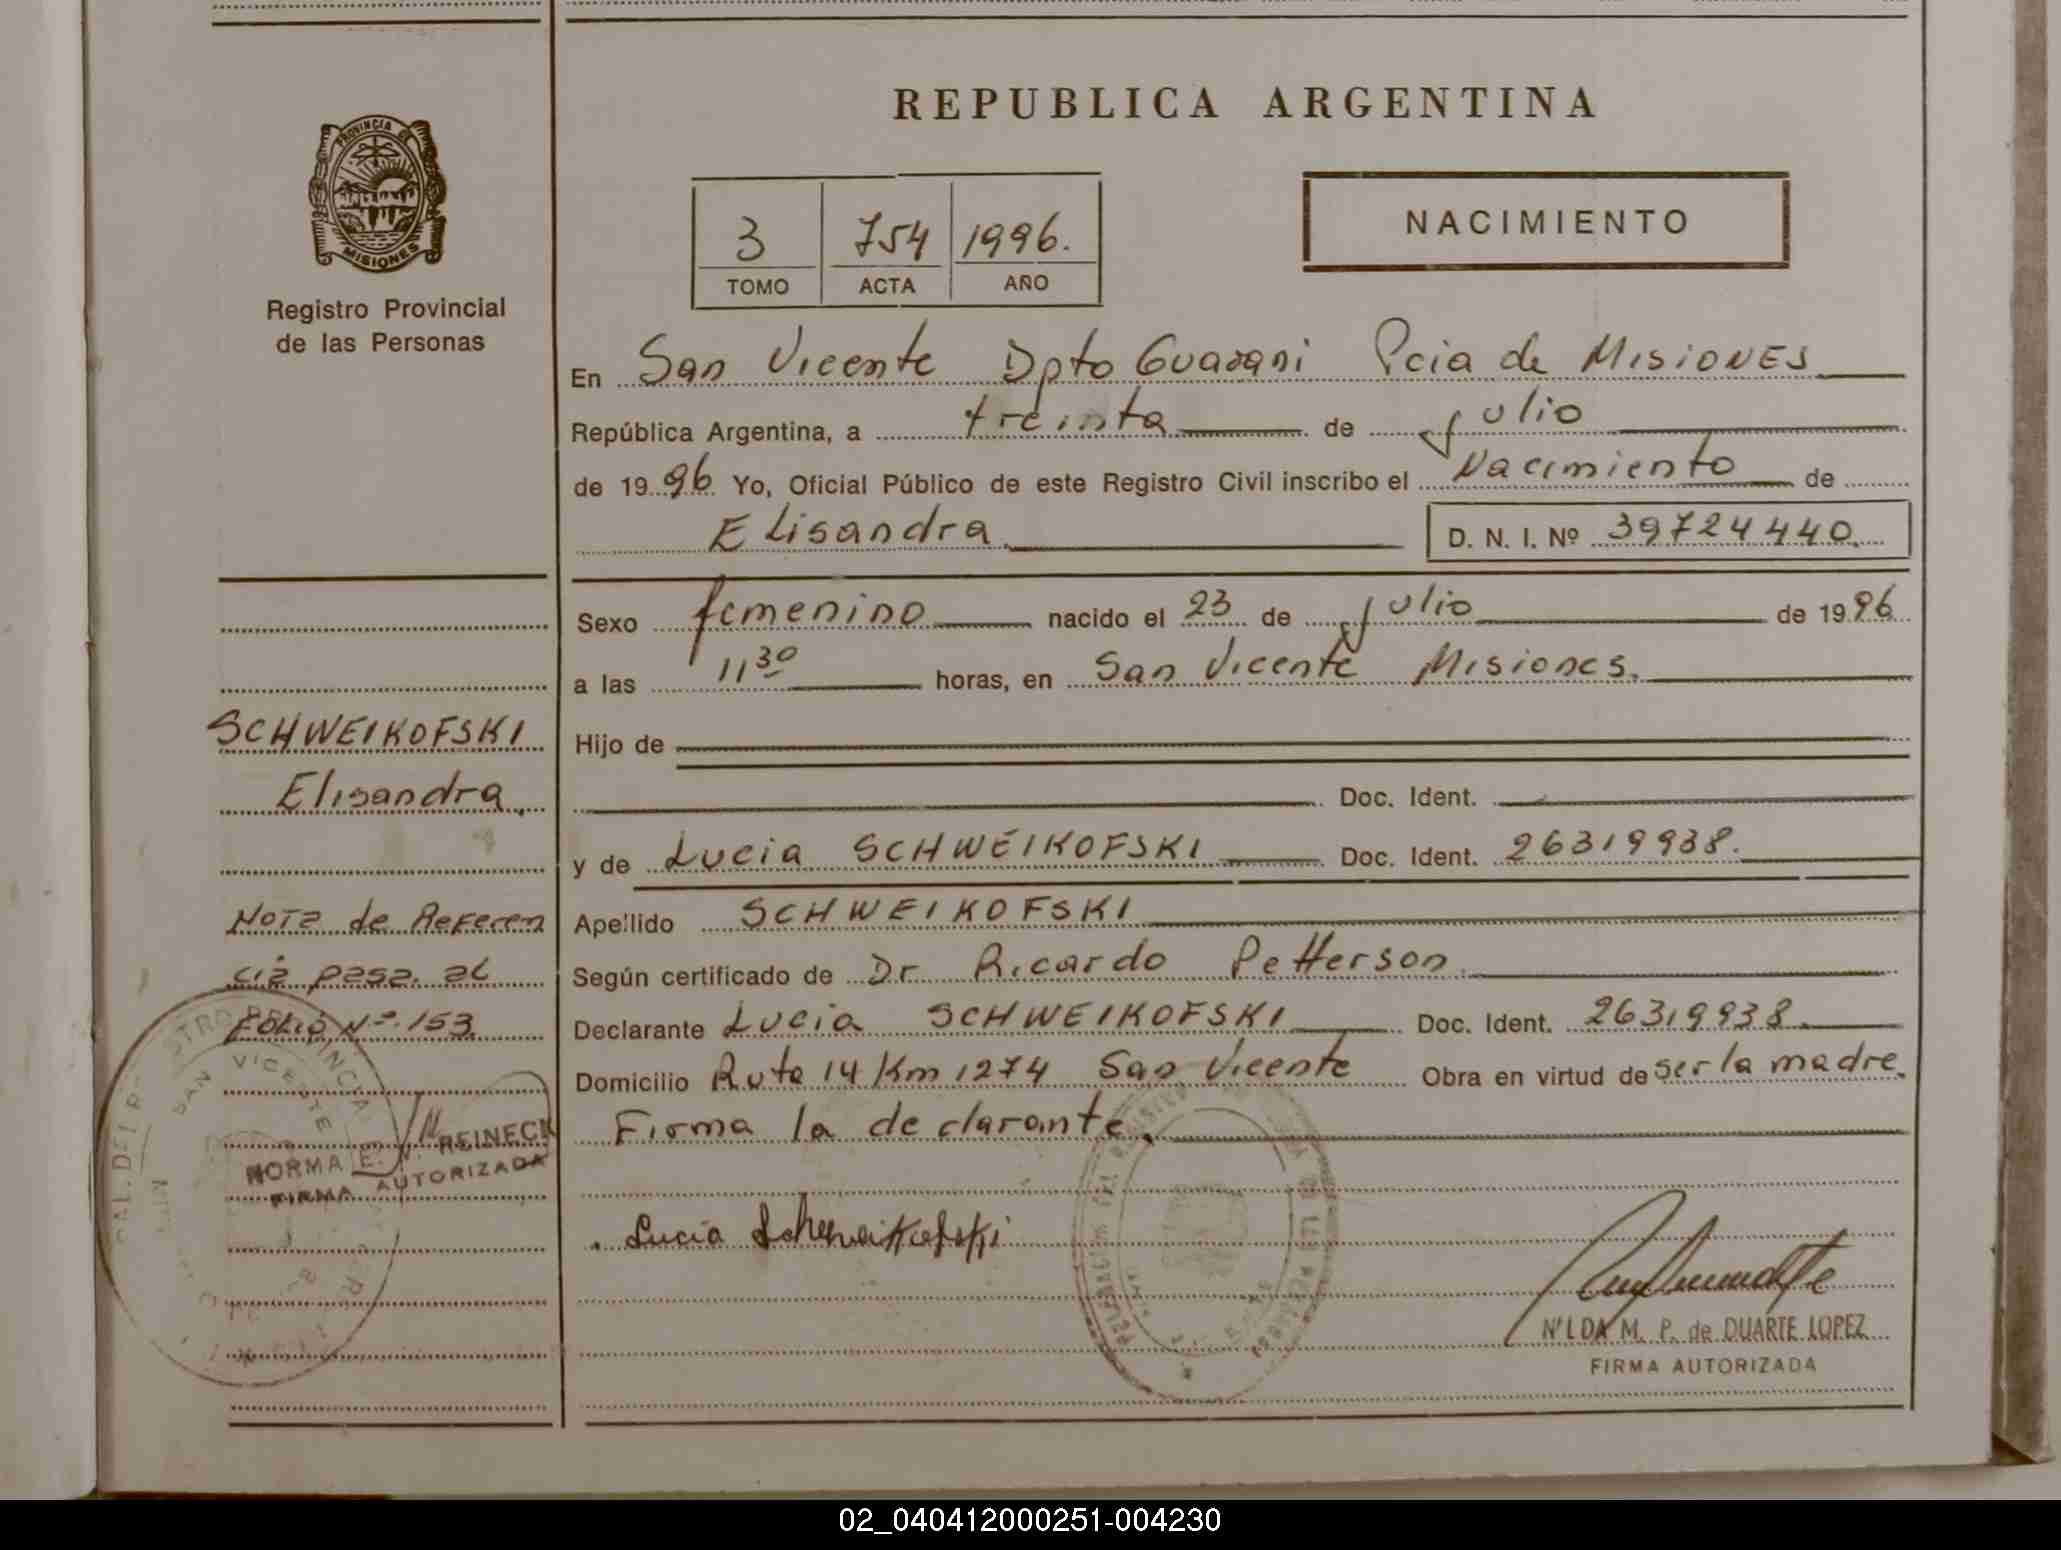 REPUBLICA ARGENTINA
PROVINCIA DE
MISIONES
Registro Provincial
de las Personas
3 754 1996.
TOMO ACTA AÑO
NACIMIENTO
En San Vicente Dpto Guarani Pcia de MISIONES
República Argentina, a treinta de Julio
de 1996 Yo, Oficial Público de este Registro Civil inscribo el Nacimiento de
Elisandra D. N. I. Nº 39724440.
Sexo femenino nacido el 23 de Julio de 1996
a las 11 30 horas, en San Vicente Misiones.
Hijo de
Doc. Ident.
y de Lucia SCHWEIKOFSKI Doc. Ident. 26319938.
Apellido SCHWEIKOFSKI
Según certificado de Dr Ricardo Petterson.
Declarante Lucia SCHWEIKOFSKI Doc. Ident. 26319938.
Domicilio Ruta 14 Km 1274 San Vicente Obra en virtud de ser la madre.
Firma la declarante.
Lucia Schweikofski
NILDA M. P. de DUARTE LOPEZ
FIRMA AUTORIZADA
SCHWEIKOFSKI
Elisandra
Nota de Referen
cia pasa. al
Folio Nº. 153.
SAN VICENTE
NORMA E. REINECK
FIRMA AUTORIZADA
02_040412000251-004230